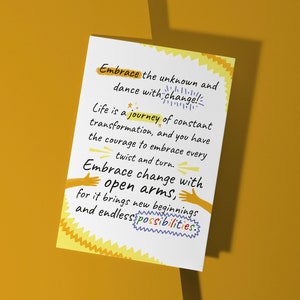 Embrace the unknown and
dance with change!
Life is a journey of constant
transformation, and you have
the courage to embrace every
twist and turn.
Embrace change with
open arms,
for it brings new beginnings
and endless possibilities.